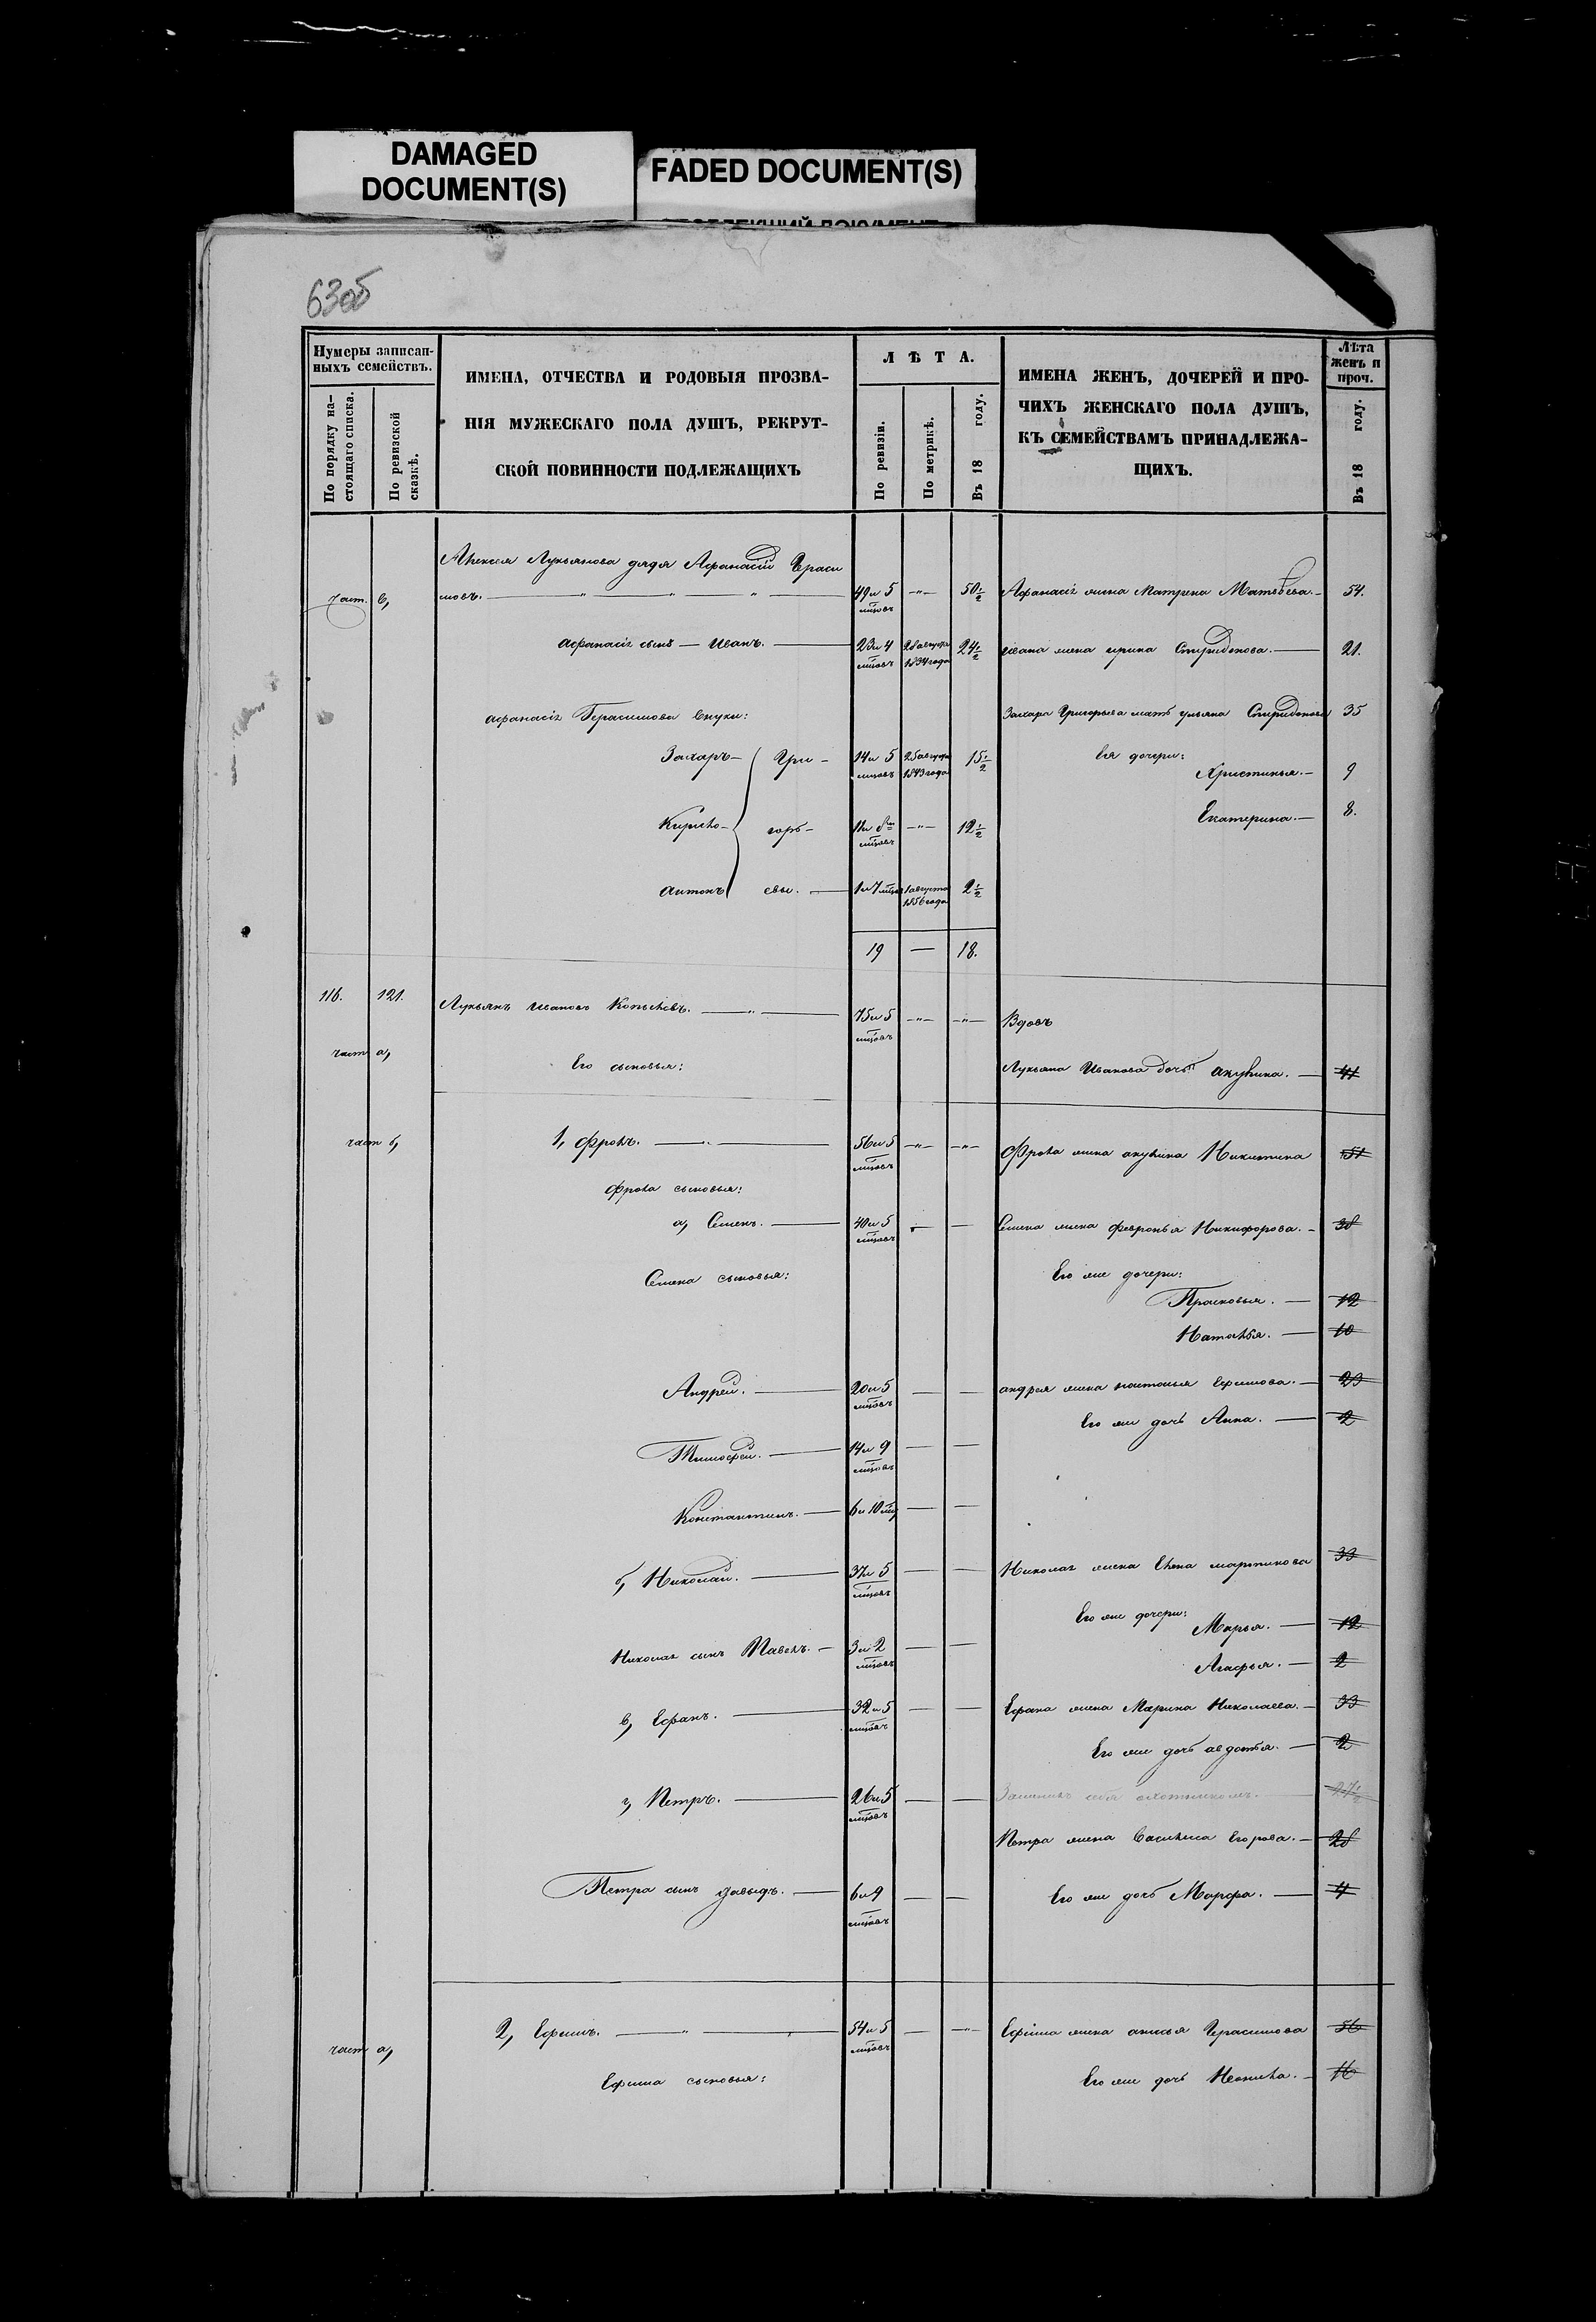 DAMAGED
DOCUMENT(S)
FADED DOCUMENT(S)
63об
Нумеры записан-
ныхъ семействъ.
По порядку на-
стоящаго списка.
По ревизской
сказкѣ.
ИМЕНА, ОТЧЕСТВА И РОДОВЫЯ ПРОЗВА-
НІЯ МУЖЕСКАГО ПОЛА ДУШЪ, РЕКРУТ-
СКОЙ ПОВИННОСТИ ПОДЛЕЖАЩИХЪ
ЛѢТА.
По ревизіи.
По метрикѣ.
Въ 18 году.
ИМЕНА ЖЕНЪ, ДОЧЕРЕЙ И ПРО-
ЧИХЪ ЖЕНСКАГО ПОЛА ДУШЪ,
КЪ СЕМЕЙСТВАМЪ ПРИНАДЛЕЖА-
ЩИХЪ.
Лѣта
женъ и
проч.
Въ 18 году.
Алексея Лукьянова дядя Афанасій Гераси
част. в, мовъ. 49 и 5 мцовъ 50½ Афанасія жена Матрена Матвѣева. 54.
Афанасія сынъ — Иванъ. 23 и 4 мцовъ 28 августа 1834 года 24½ Ивана жена Ирина Спиридонова. 21.
Афанасія Герасимова внуки: Захара Григорьева мать ульяна Спиридонова 35
Захаръ Гри- 14 и 5 мцовъ 25 августа 1843 года 15½ Ея дочери:
Христинья. 9
Кирило горь- 11 и 8 мцовъ 12½ Екатерина. 8.
Антонъ евы. 1 и 7 мцов 1 августа 1856 года 2½
19 — 18.
116. 121. Лукьянъ Ивановъ 75 и 5 мцовъ Вдовъ
част а, Его сыновья: Лукьяна Иванова дочь акулина. 41
част б, 1, Фролъ. 56 и 5 мцовъ Фрола жена акулина Никитина 51
Фрола сыновья:
а, Семенъ. 40 и 5 мцовъ Семена жена Февронья Никифорова. 38
Семена сыновья: Его же дочери:
Прасковья. 12
Наталья. 10
Андрей. 20 и 5 мцовъ андрея жена настасья Ефимова. 23
Его же дочь Анна. 2
Тимофей. 14 и 9 мцовъ
Константинъ. 6 и 10 мцов
б, Николай. 37 и 5 мцовъ Николая жена Елена мартинова 33
Его же дочери: Марья. 12
Николая сынъ Павелъ. 3 и 2 мцовъ Агафья. 2
в, Ефанъ. 32 и 5 мцовъ Ефана жена Марина Николаева. 33
Его же дочь авдотья. 2
г, Петръ. 26 и 5 мцовъ Замѣнилъ себя охотникомъ. 27½
Петра жена Василиса Егорова. 28
Петра сынъ давыдъ. 6 и 9 мцовъ Его же дочь Марфа. 4
част а, 2, Ефимъ. 54 и 5 мцовъ Ефима жена анисья Герасимова 56
Ефима сыновья: Его же дочь Неонила. 16